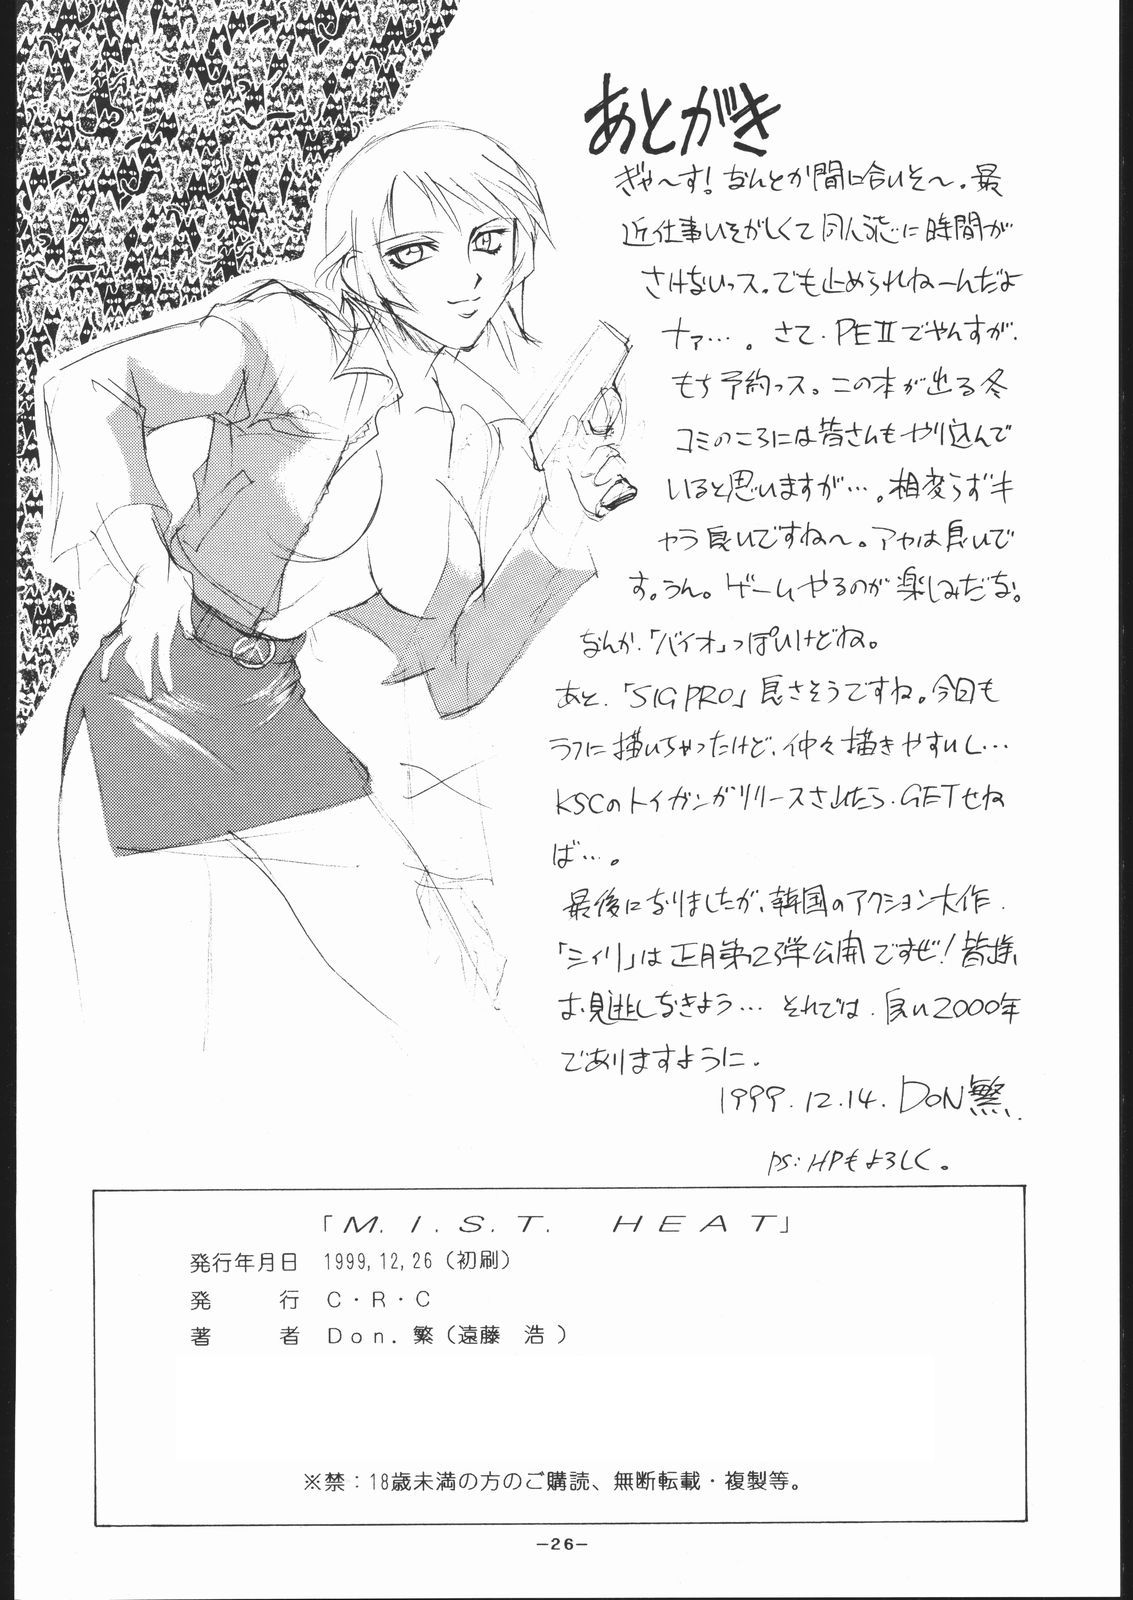 あとがき
ぎゃ〜す!なんとか間に合いそ〜。最
近仕事いそがしくて同人誌に時間が
さけないっス。でも止められねーんだよ
ナァ…。さて、PEⅡでやんすが、
もち予約っス。この本が出る冬
コミのころには皆さんもやり込んで
いると思いますが…。相変らずキ
ャラ良いですね〜。アヤは良いで
す。うん。ゲームやるのが楽しみだな。
なんか、「バイオ」っぽいけどね。
あと、「SIG PRO」良さそうですね。今回も
ラフに描いちゃったけど、仲々描きやすいし…
KSCのトイガンがリリースされたら、GETせね
ば…。
最後になりましたが、韓国のアクション大作、
「シュリ」は正月第2弾公開ですぜ!皆様
お見逃しなきよう…それでは、良い2000年
でありますように.
1999.12.14. DoN繁.
PS:HPもよろしく。
「M.I.S.T. HEAT」
発行年月日 1999,12,26(初刷)
発 行 C・R・C
著 者 Don.繁(遠藤 浩)
※禁:18歳未満の方のご購読、無断転載・複製等。
-26-